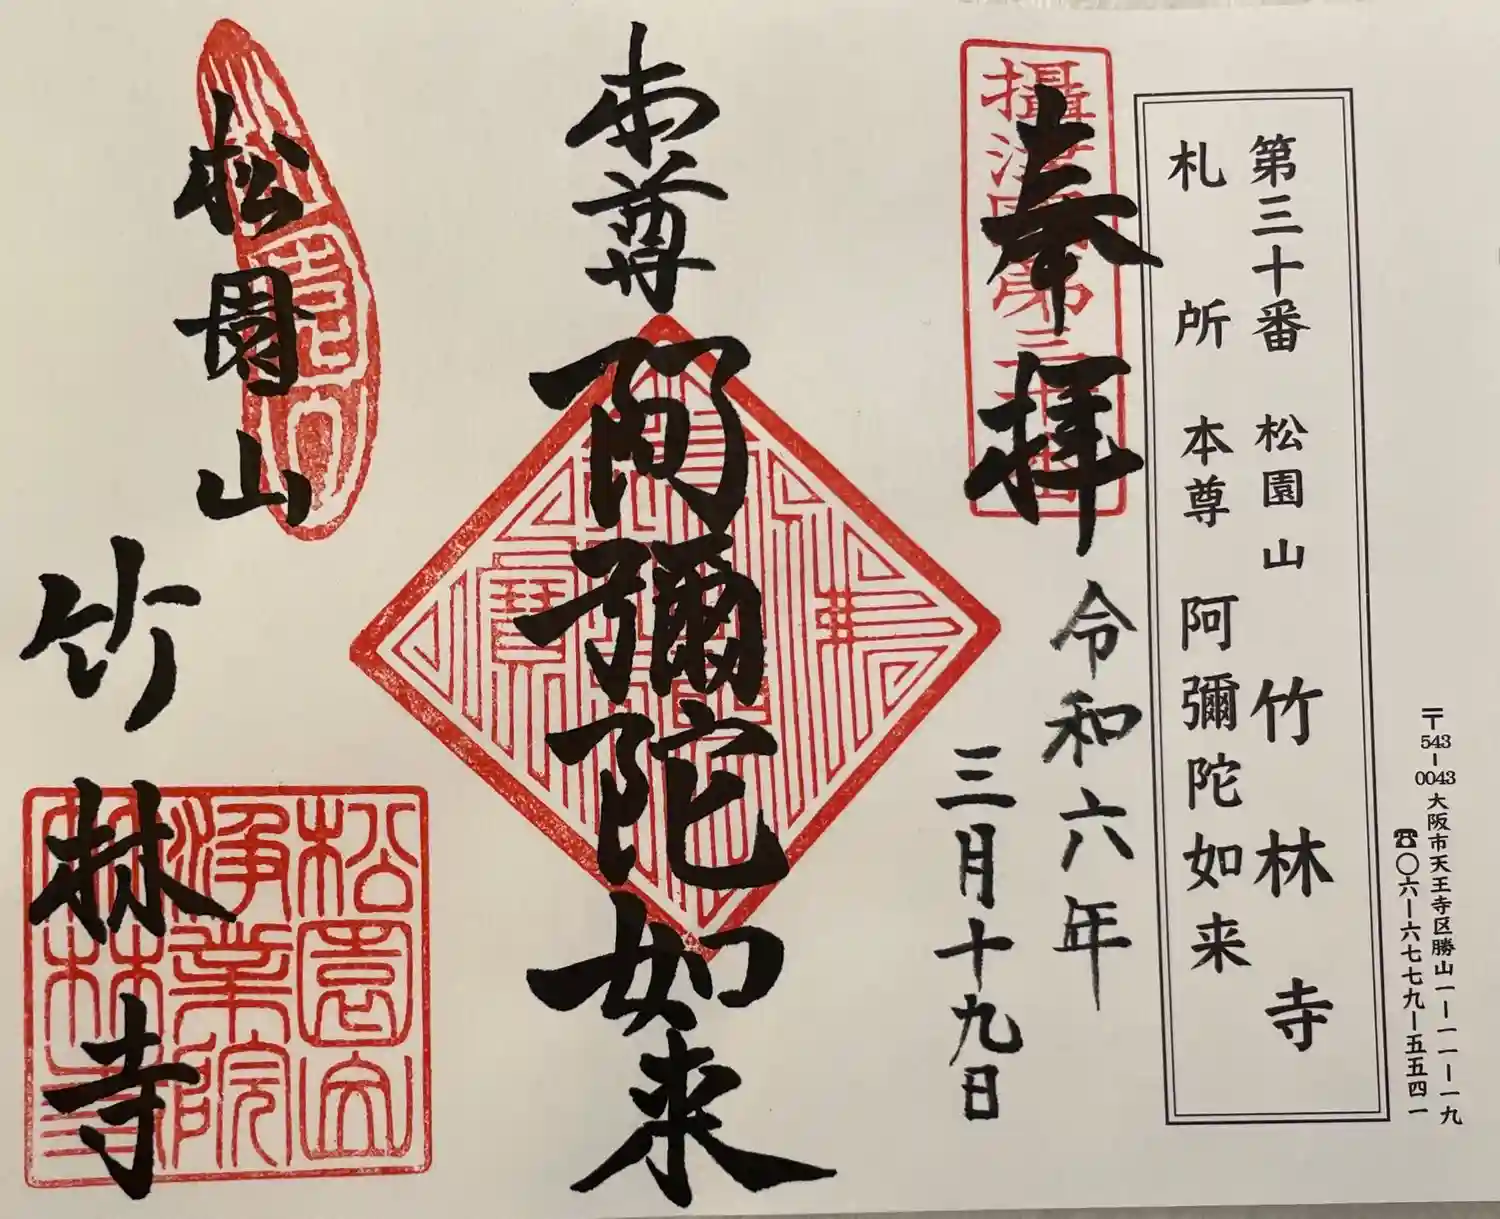 〒543-0043 大阪市天王寺区勝山一ー一一ー一九
☎〇六ー六七七九ー五五四一
第三十番 松園山 竹林寺
札所 本尊 阿彌陀如来
攝津國第三十
奉拝
令和六年
三月十九日
本尊 阿彌陀如来
松園山
松園山
竹林寺
松園山
浄業院
竹林寺